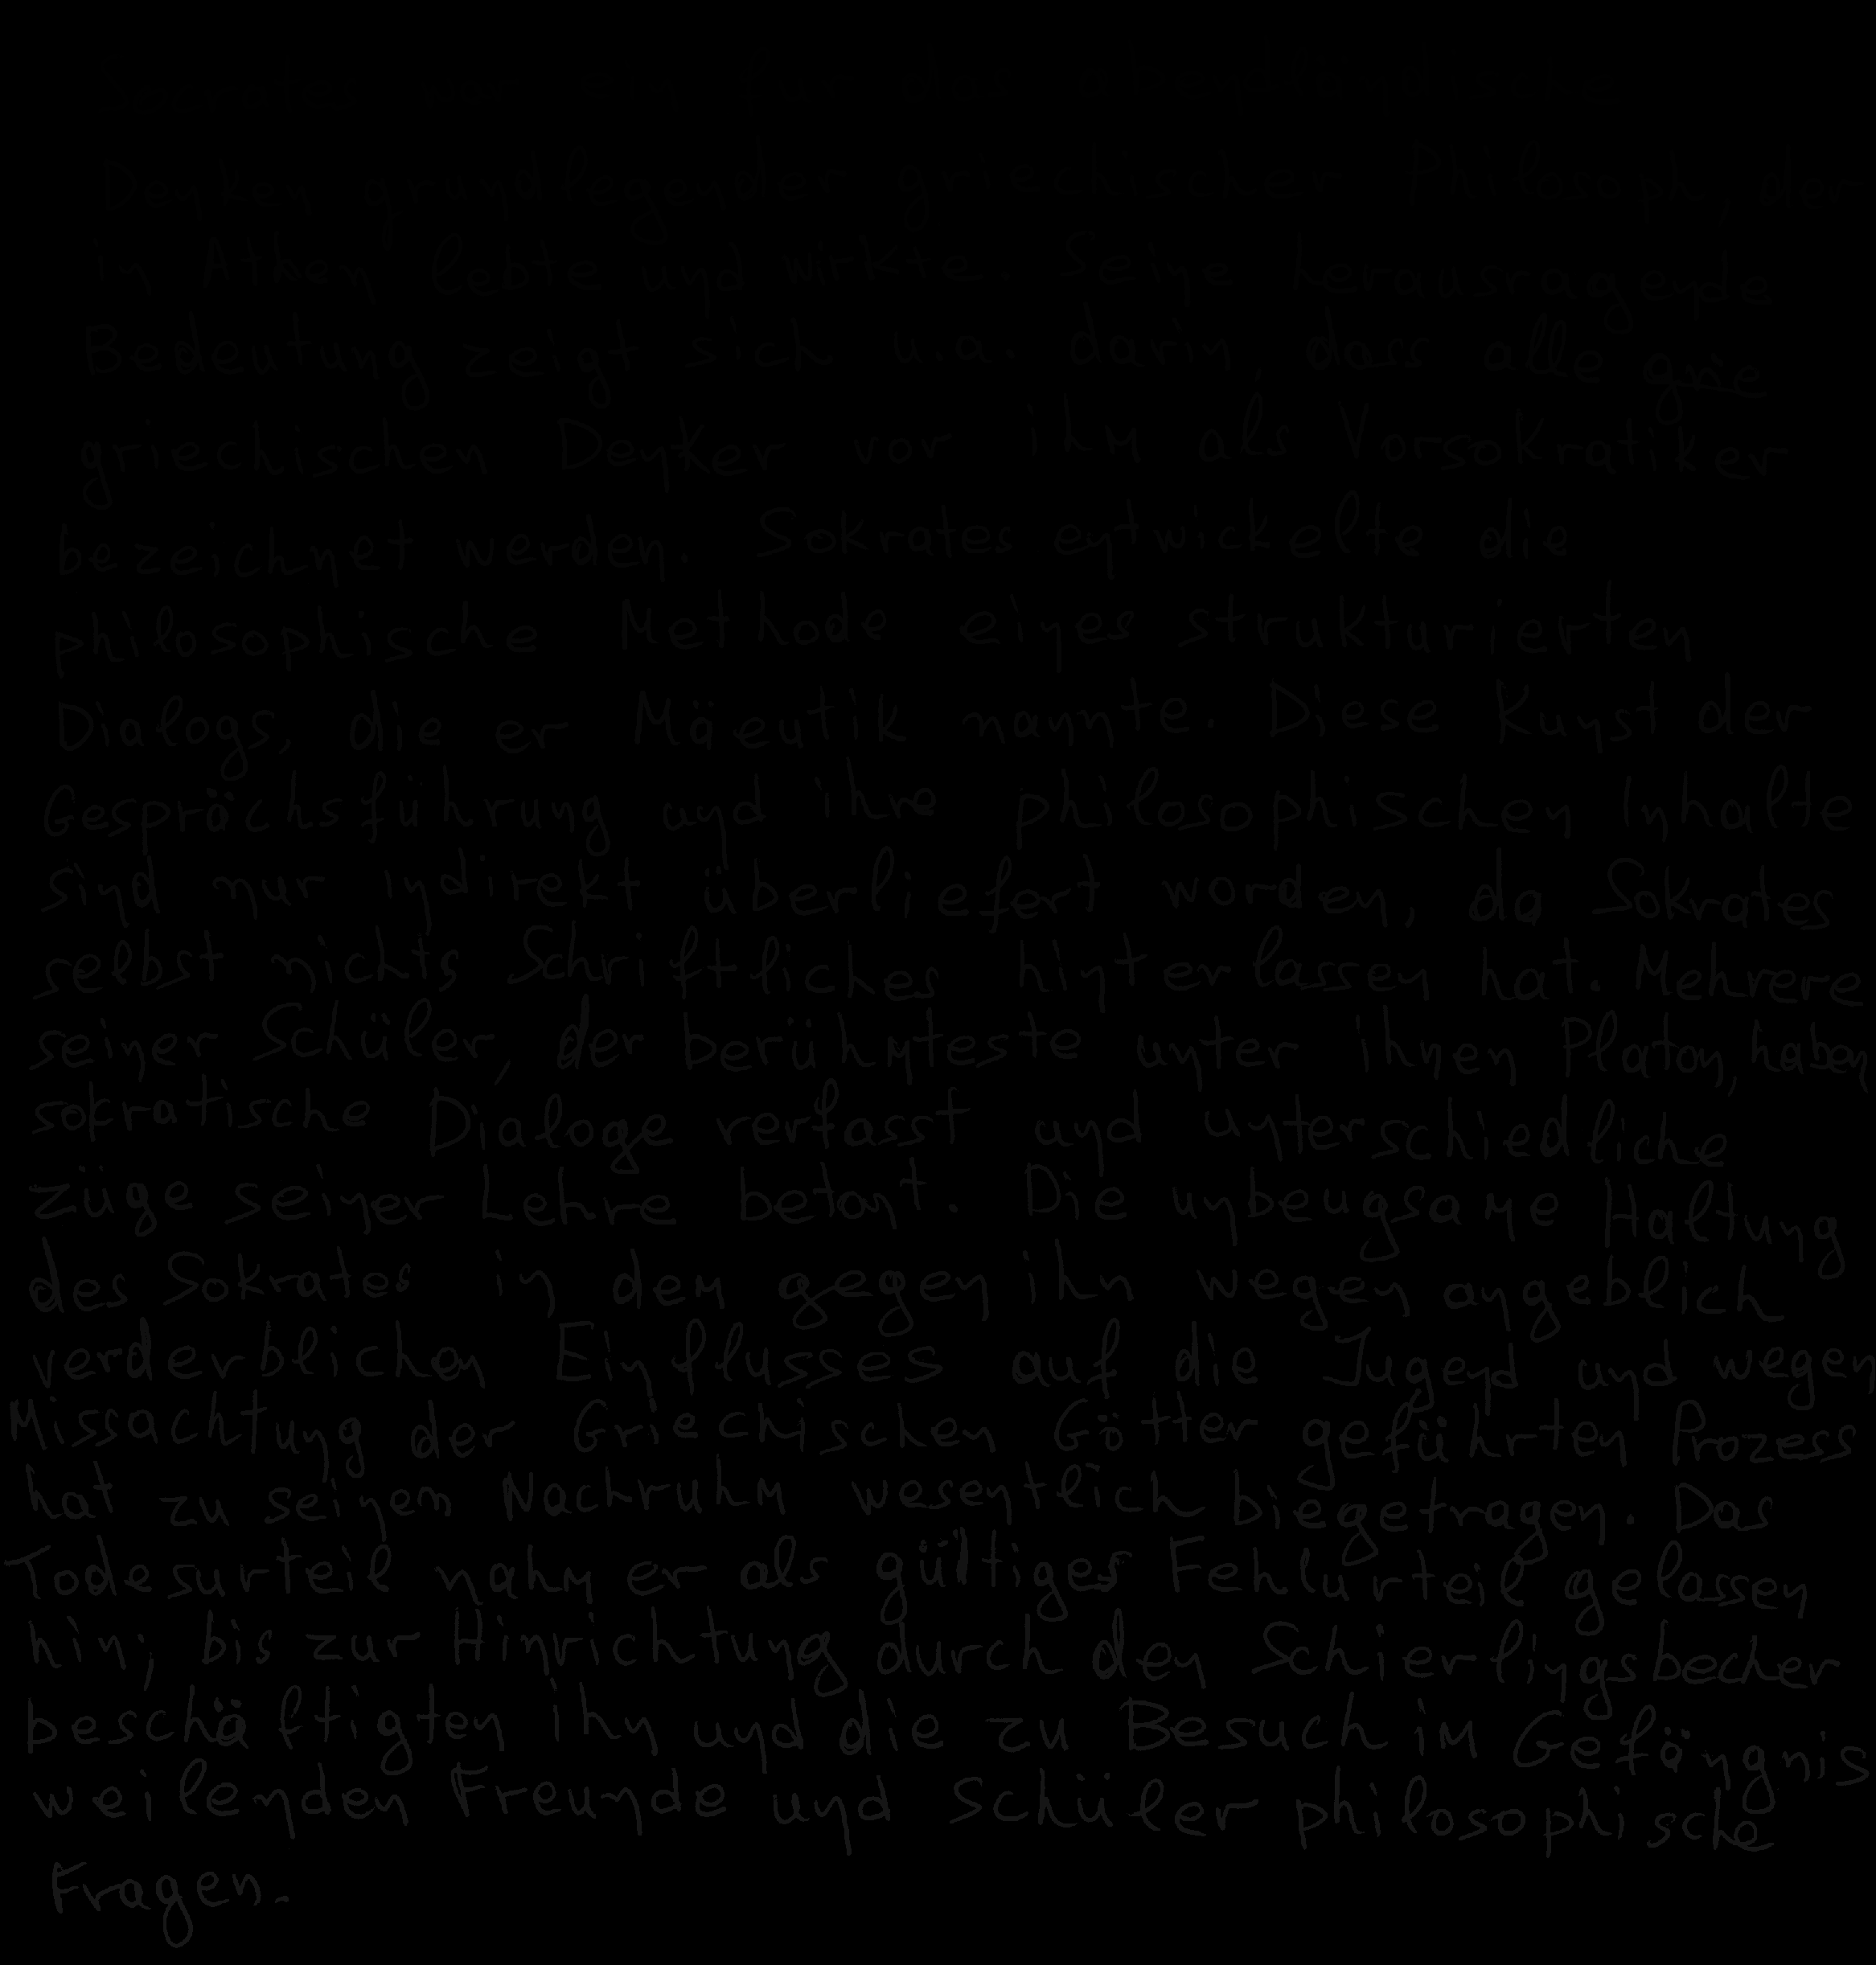 Denken grundlegender griechischer Philosoph, der
in Athen lebte und wirkte. Seine herausragende
Bedeutung zeigt sich u.a. darin, dass alle grie
griechischen Denker vor ihm als Vorsokratiker
bezeichnet werden. Sokrates entwickelte die
philosophische Methode eines strukturierten
Dialogs, die er Mäeutik nannte. Diese Kunst der
Gesprächsführung und ihre philosophischen Inhalte
sind nur indirekt überliefert worden, da Sokrates
selbst nichts Schriftliches hinterlassen hat. Mehrere
seiner Schüler, der berühmteste unter ihnen Platon, haben
sokratische Dialoge verfasst und unterschiedliche
züge seiner Lehre betont. Die unbeugsame Haltung
des Sokrates in dem gegen ihn wegen angeblich
verderblichen Einflusses auf die Jugend und wegen
Missachtung der Griechischen Götter geführten Prozess
hat zu seinem Nachruhm wesentlich biegetragen. Das
Todesurteil nahm er als gültiges Fehlurteil gelassen
hin; bis zur Hinrichtung durch den Schierlingsbecher
beschäftigten ihn und die zu Besuch im Gefängnis
weilenden Freunde und Schüler philosophische
Fragen.